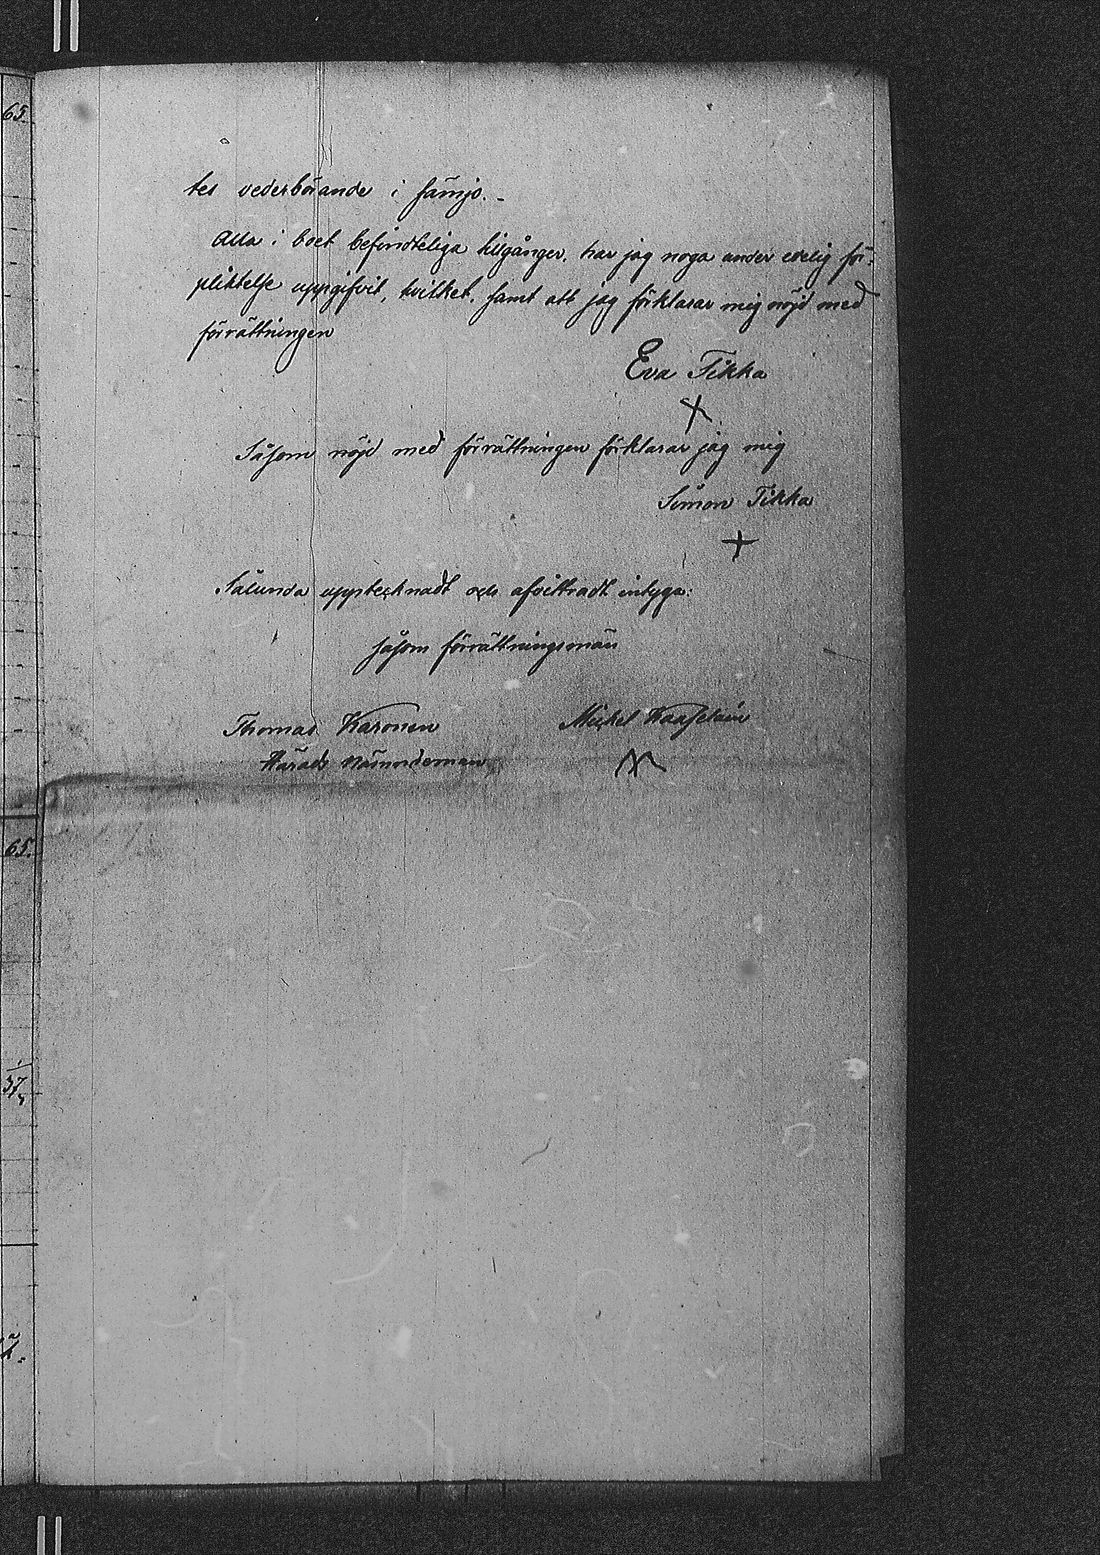 65.
tes vederbörande i sämjo.-
Alla i boet befindteliga tilgånger, har jag noga under edelig för-
pliktelse uppgifvit, hvilket, samt att jag förklarar mig nöjd med
förrättningen
Eva Tikka
X
Såsom nöjd med förrättningen förklarar jag mig
Simon Tikka
+
Sålunda upptecknadt och afvittradt intyga:
såsom förrättningsmän
Thomas Karonen Michel
Härads nämndeman
65.
37